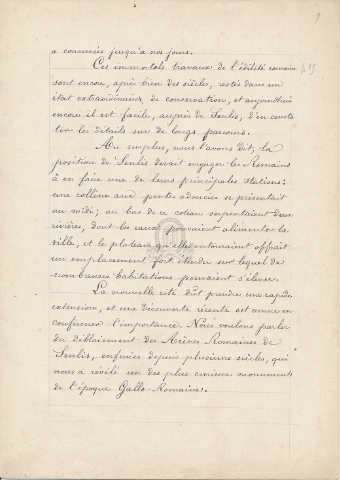 a conservées jusqu'à nos jours.
Ces immortels travaux de l'édilité romaine
sont encore, après bien des siècles, restés dans un
état extraordinaire de conservation, et aujourd'hui
encore il est facile, auprès de Senlis, d'en consta-
ter les détails sur de longs parcours.
Au surplus, nous l'avons dit, la
position de Senlis devait engager les Romains
à en faire une de leurs principales stations:
une colline aux pentes adoucies se présentait
au midi; au bas de ce coteau serpentaient deux
rivières, dont les eaux pouvaient alimenter la
ville, et le plateau qu'elles entouraient offrait
un emplacement fort étendu sur lequel de
nombreuses habitations pouvaient s'élever.
La nouvelle cité dût prendre une rapide
extension, et une découverte récente est venue en
confirmer l'importance. Nous voulons parler
du déblaiement des Arènes Romaines de
Senlis, enfouies depuis plusieurs siècles, qui
nous a révélé un des plus curieux monuments
de l'époque Gallo-Romaine.